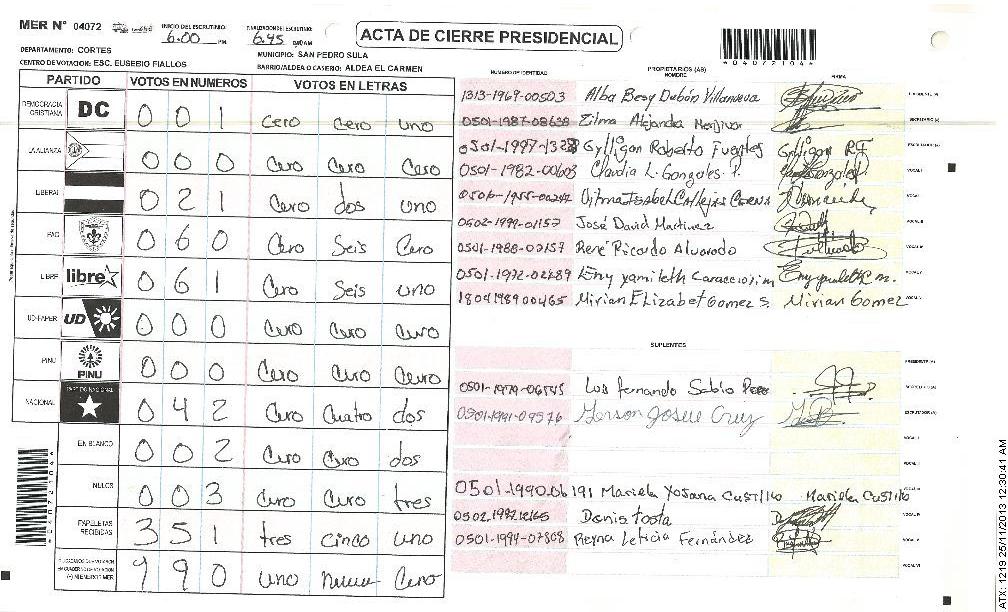 MER N° 04072
INICIO DEL ESCRUTINIO: 6:00 PM
FINALIZACION DEL ESCRUTINIO: 6:45
ACTA DE CIERRE PRESIDENCIAL
*04072104*
DEPARTAMENTO: CORTES
MUNICIPIO: SAN PEDRO SULA
CENTRO DE VOTACION: ESC. EUSEBIO FIALLOS
BARRIO/ALDEA O CASERIO: ALDEA EL CARMEN
PARTIDO VOTOS EN NUMEROS VOTOS EN LETRAS
DEMOCRACIA CRISTIANA DC 0 0 1 Cero Cero uno
LA ALIANZA 0 0 0 Cero Cero Cero
LIBERAL 0 2 1 Cero dos uno
PAC 0 6 0 Cero Seis Cero
LIBRE libre 0 6 1 Cero Seis uno
UD-FAPER UD 0 0 0 Cero Cero Cero
PINU PINU 0 0 0 Cero Cero Cero
NACIONAL PARTIDO NACIONAL 0 4 2 Cero Cuatro dos
EN BLANCO 0 0 2 Cero Cero dos
NULOS 0 0 3 Cero Cero tres
PAPELETAS RECIBIDAS 3 5 1 tres Cinco uno
9 0 uno Cero
NUMERO DE IDENTIDAD PROPIETARIOS (AS) NOMBRE FIRMA
1313-1969-00503 Alba Besy Dubón Villanueva PRESIDENTE (A)
0501-1987-08638 Zilma Alejandra Menjivar SECRETARIO (A)
0501-1997- Gylligan Roberto Fuentes Gylligan RF ESCRUTADOR (A)
0501-1982-00603 Claudia L. Gonzales P. VOCAL I
VOCAL II
0502-1999-01157 José David Martinez VOCAL III
0501-1988-07157 René Ricardo Alvarado VOCAL IV
0501-1972-02489 Eny yamileth VOCAL V
1804198900465 Mirian Elizabet Gomez S. Mirian Gomez VOCAL VI
SUPLENTES
PRESIDENTE (A)
0501-1979-06545 Luis Fernando Sabio SECRETARIO (A)
0501-1991-09576 Gerson Josue Cruz ESCRUTADOR (A)
VOCAL I
VOCAL II
0501-1990-06191 Mariela Yosana Custillo Mariela Custillo VOCAL III
Denis Tosta VOCAL IV
0501-1994-07808 Reyna Leticia Fernández VOCAL V
VOCAL VI
*04072104*
ATX: 1219 25/11/2013 12:30:41 AM